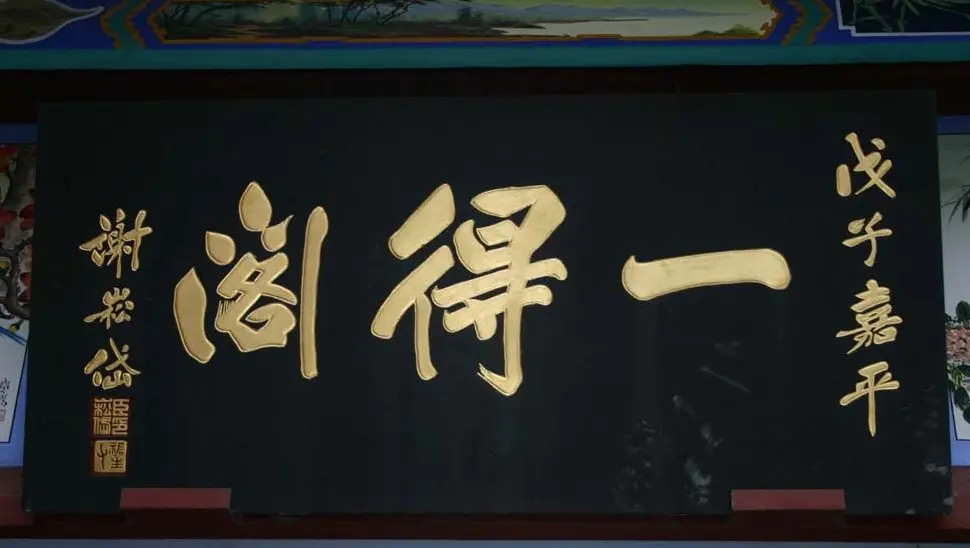 戊子嘉平
一得阁
谢崧岱